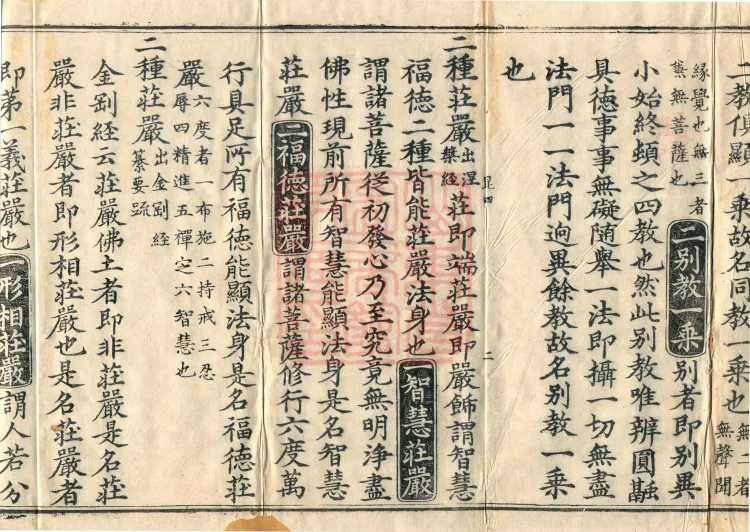 二教俱顯一乘故名同教一乘也無二者無聲聞
緣覺也無三者葢無菩薩也二別教一乘別者即別異
小始終頓之四教也然此別教唯辨圓融
具德事事無礙随舉一法即攝一切無盡
法門一一法門逈異餘教故名別教一乘
也
昆四 二
二種莊嚴出涅槃經莊即端莊嚴即嚴飾謂智慧
福德二種皆能莊嚴法身也一智慧莊嚴
謂諸菩薩從初發心乃至究竟無明淨盡
佛性現前所有智慧能顯法身是名智慧
莊嚴二福德莊嚴謂諸菩薩修行六度萬
行具足所有福德能顯法身是名福德莊
嚴六度者一布施二持戒三忍辱四精進五禪定六智慧也
二種莊嚴出金剛經纂要疏
金剛經云莊嚴佛土者即非莊嚴是名莊
嚴非莊嚴者即形相莊嚴也是名莊嚴者
即第一義莊嚴也形相莊嚴謂人若分